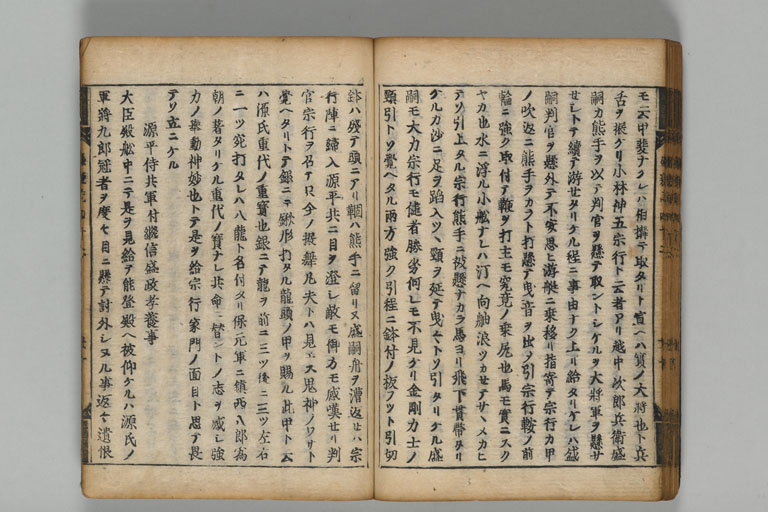 モ云甲斐ナクレハ相構テ取タリト宣ヘハ實ノ大將也ト兵
舌ヲ振ケリ小林神五宗行ト云者アリ越中次郎兵衛盛
嗣カ熊手ヲ以テ判官ヲ懸テ取ントシケルヲ大將軍ヲ懸サ
セシトテ續テ游セタリケル程ニ事由ナク上リ給タリケレハ盛
嗣判官ヲ懸外テ不安思ヒ游艇ニ乗移リ指寄テ宗行カ甲
ノ吹返ニ熊手ヲカラト打懸テ曳音ヲ出シ引宗行鞍ノ前
輪ニ強ク取付テ鞭ヲ打主モ究竟ノ乗尻也馬モ實ニスク
ヤカ也水ニ浮ル小舩ナレハ汀ヘ向舳浪ツカセテサヽメカヒ
テソ引上タル宗行熊手ニ被懸ナカラ馬ヨリ飛下貫帶タリ
ケルカ沙ニ足ヲ蹈入ツヽ頸ヲ延テ曳ヤトソ引タリケル盛
嗣モ大力宗行モ健者勝劣何レモ不見ケリ金剛力士ノ
頸引トソ覺ヘタル兩方強ク引程ニ鉢付ノ板フツト引切
鉢ハ殘テ頭ニアリ鞠ハ熊手ニ留リヌ盛嗣舟ヲ漕返セハ宗
行陣ニ歸入源平共ニ目ヲ澄シ敵モ御方モ感嘆セリ判
官宗行ヲ召テ只今ノ振舞凡夫トハ見エス鬼神ノワサト
覺ヘタリトテ銀ニテ鍬形打タル龍頭ノ甲ヲ賜ル此甲ト云
ハ源氏重代ノ重寳也銀ニテ龍ヲ前ニ三ツ後ニ三ツ左右
ニ一ツ宛打タレハ八龍ト名付タリ保元軍ニ鎮西八郎為
朝ノ著タリケル重代ノ寳ナレ共命ニ替ントノ志ヲ感シ強
力ノ擧動神妙也トテ是ヲ給宗行家門ノ面目ト思テ畏
テソ立ニケル
源平侍共軍付繼信盛政孝養事
大臣殿舩中ニテ是ヲ見給テ能登殿ヘ被仰ケルハ源氏ノ
軍將九郎冠者ヲ度々目ニ懸テ討外シヌル事返々遺恨